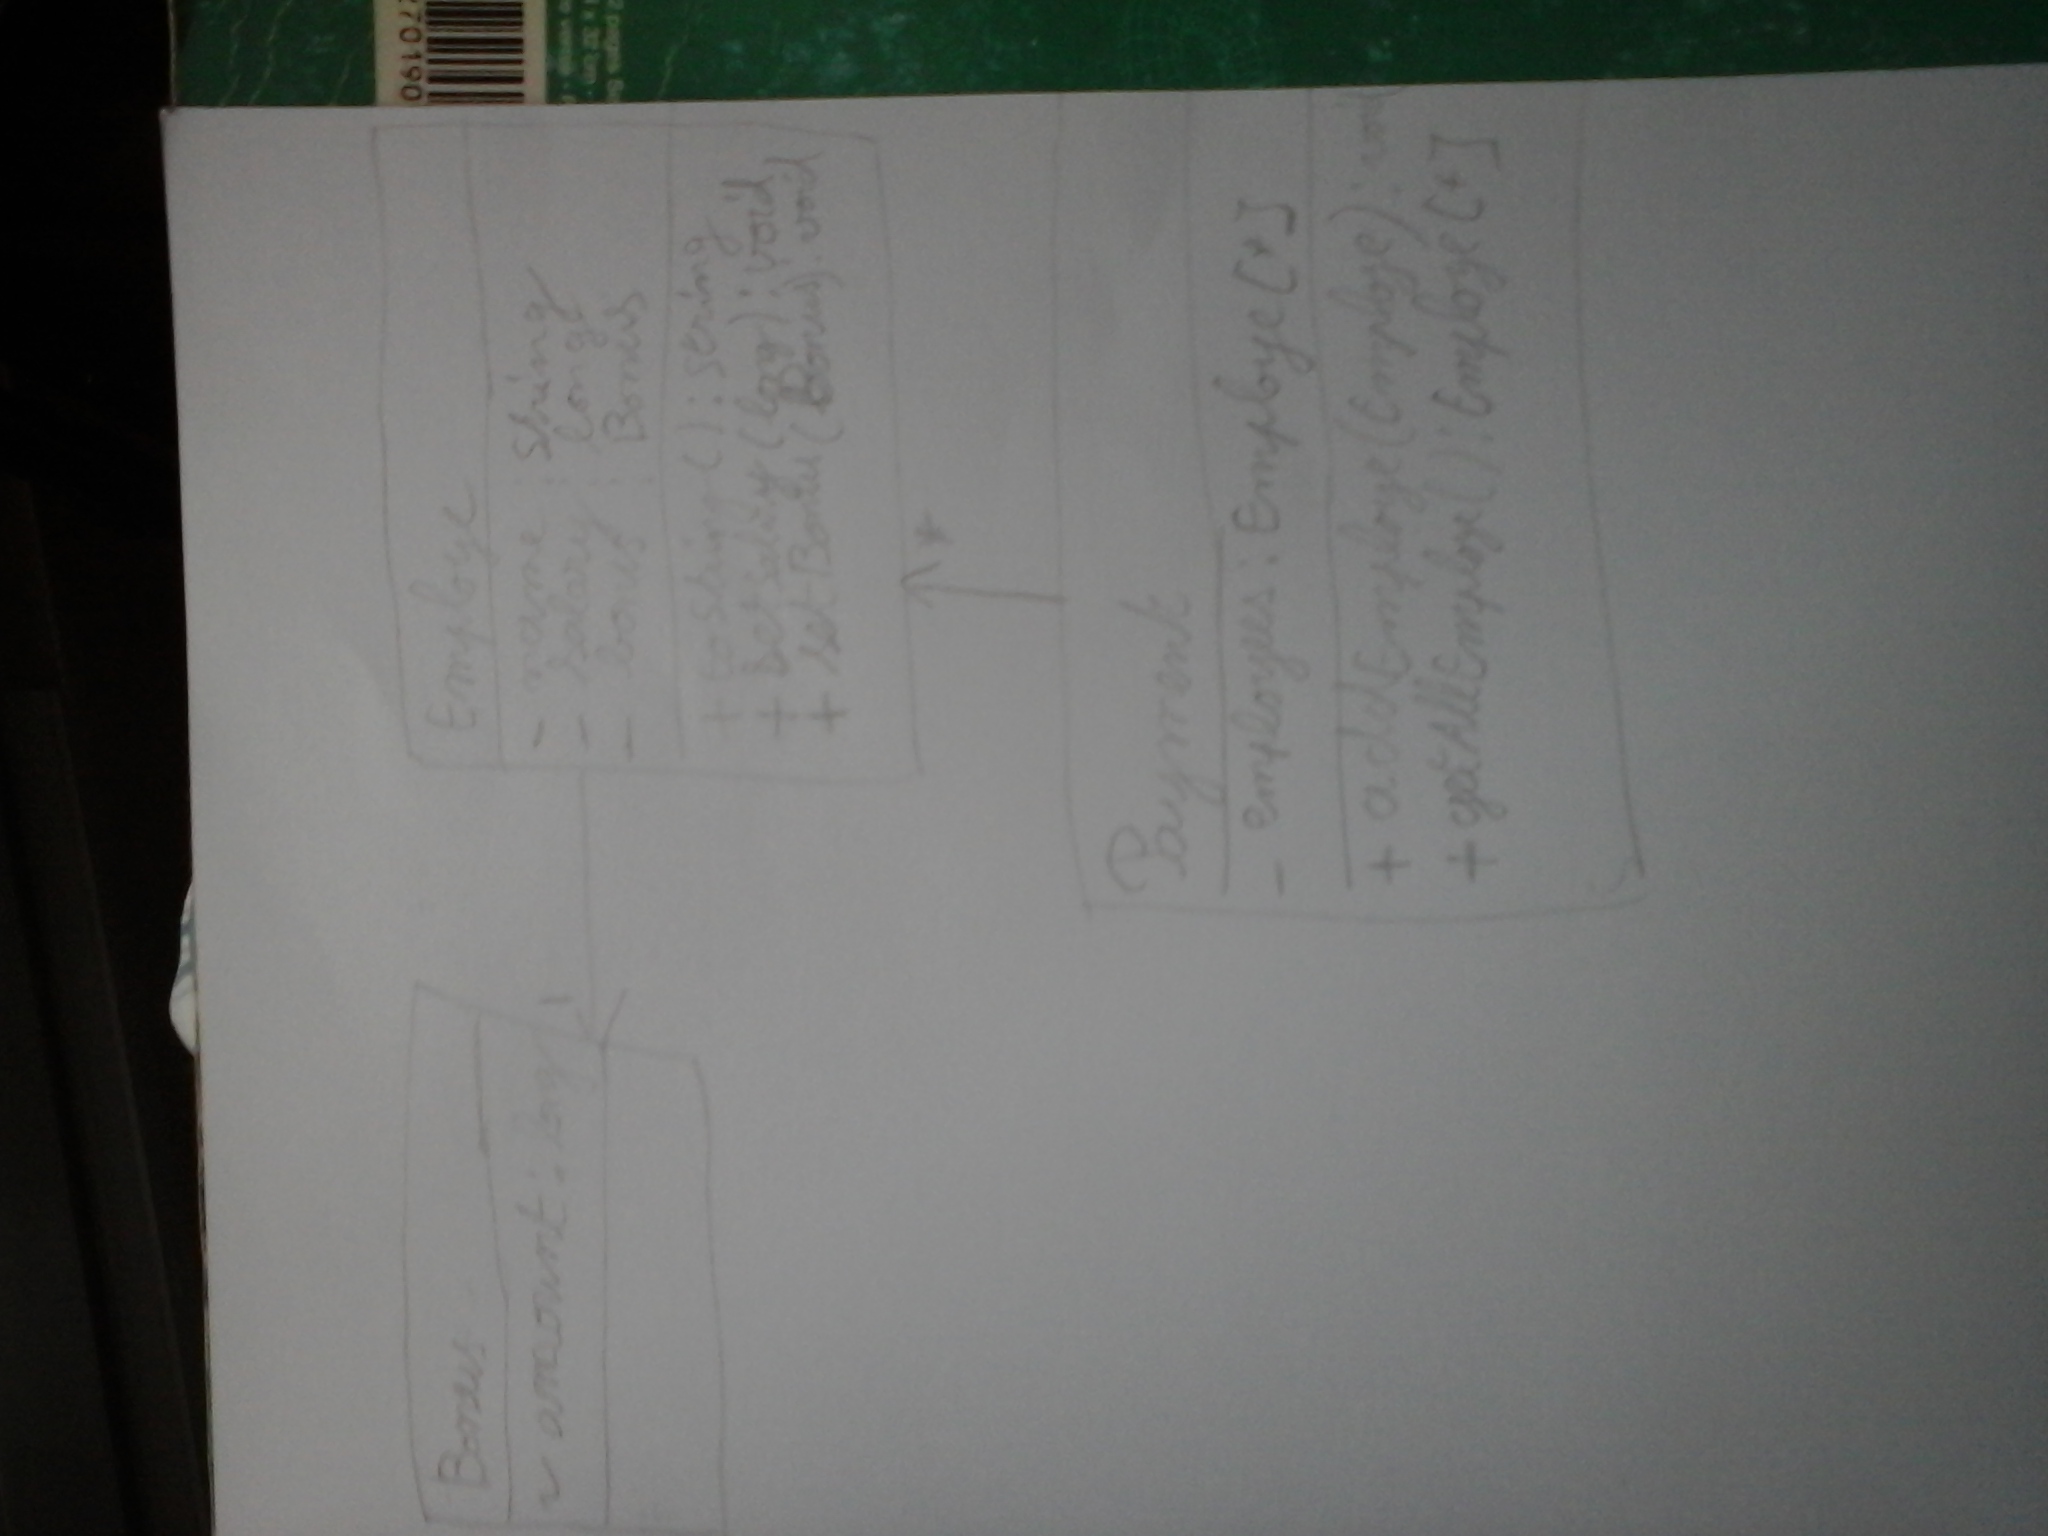 Bonus
~ amount : long
1
Employe
- name : String
- salary : long
- bonus : Bonus
+ toString() : String
+ setSalary(long) : void
+ setBonus(Bonus) : void
*
Payment
- employees : Employe[*]
+ addEmploye(Employe) : void
+ getAllEmploye() : Employe[*]